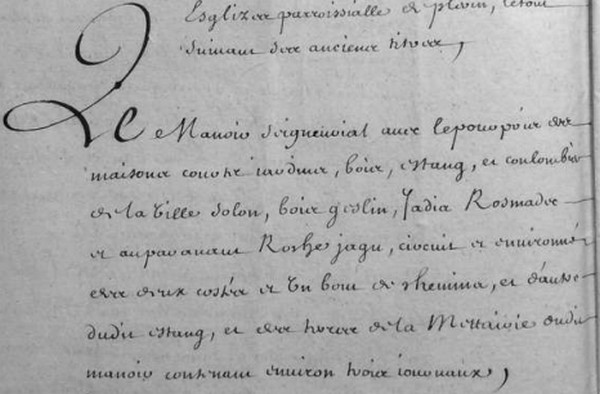 Esglize parroissialle de plerin, le tout
suivant ses anciens tiltres,
Le Manoir seigneurial avec le pourpoix des
maisons court et jardins, bois, estang, et coulombier
de la Ville Solon, bois geslin, Jadis Rosmadec
et auparavant Roche jagu, circuit et environné
des deux costés et un bout de chemins, et d'autre
dudit estang, et des terres de la Mettairie dudit
manoir contenant environ trois journaux,